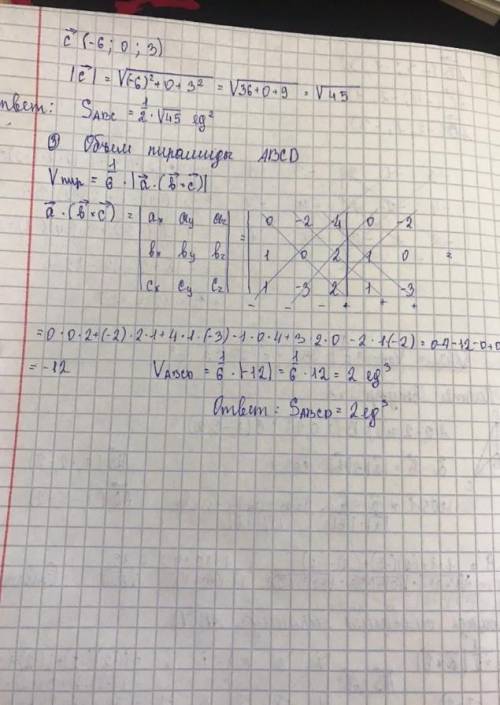 c⃗ (-6; 0; 3)
|c⃗| = √((-6)²+0+3²) = √(36+0+9) = √45
твет: S_ABC = 1/2 · √45 ед²
③ Объем пирамиды ABCD
V пир = 1/6 · |a⃗ · (b⃗ × c⃗)|
a⃗ · (b⃗ × c⃗) = | ax ay az | = | 0 -2 4 | 0 -2
| bx by bz | | 1 0 2 | 1 0 =
| cx cy cz | | 1 -3 2 | 1 -3
- - - + + +
= 0 · 0 · 2 + (-2) · 2 · 1 + 4 · 1 · (-3) - 1 · 0 · 4 + 3 · 2 · 0 - 2 · 1 (-2) = 0-4-12-0+0
= -12 V_ABCD = 1/6 · |-12| = 1/6 · 12 = 2 ед³
Ответ: S_ABCD = 2 ед³